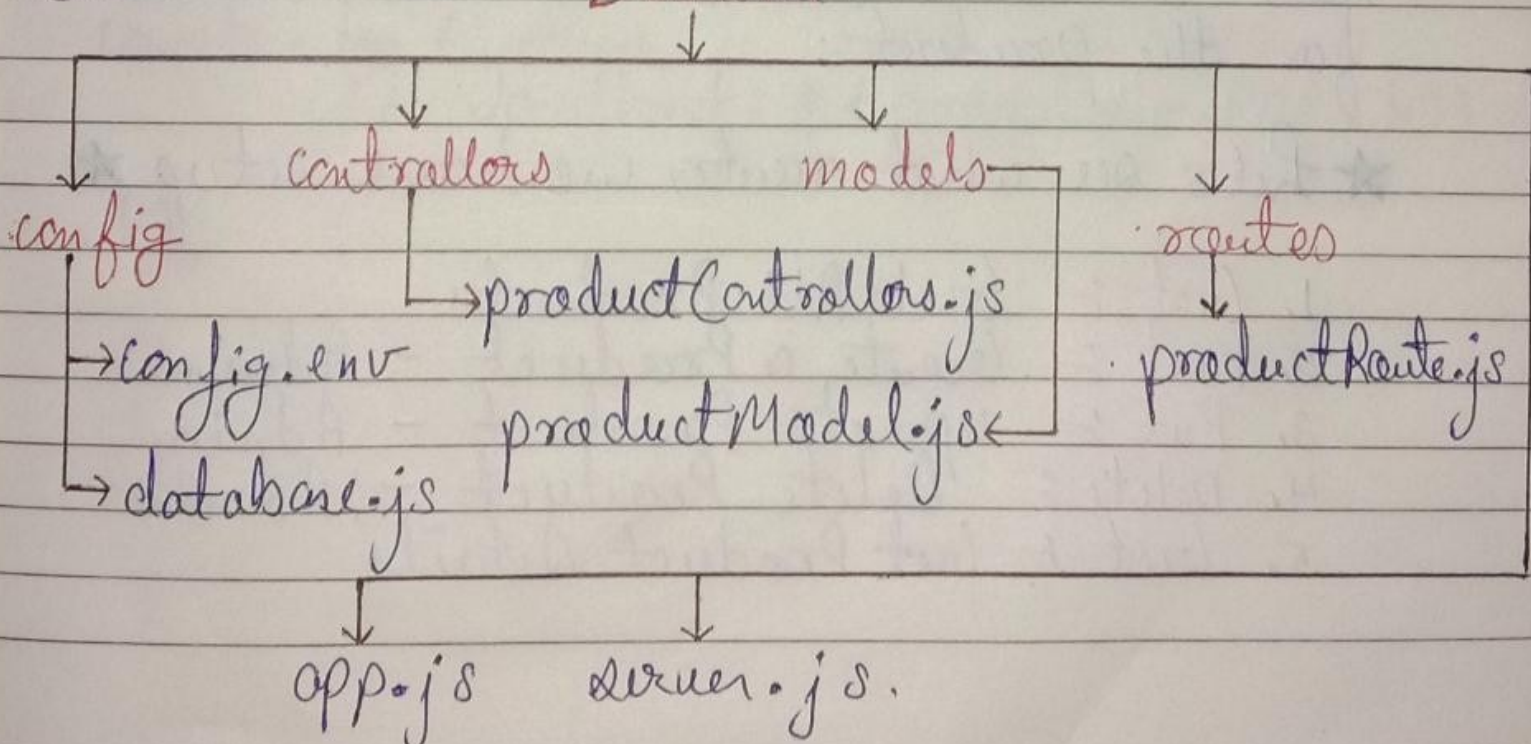 controllers models
config routes
productControllers.js
config.env productRoute.js
productModel.js
database.js
app.js server.js.